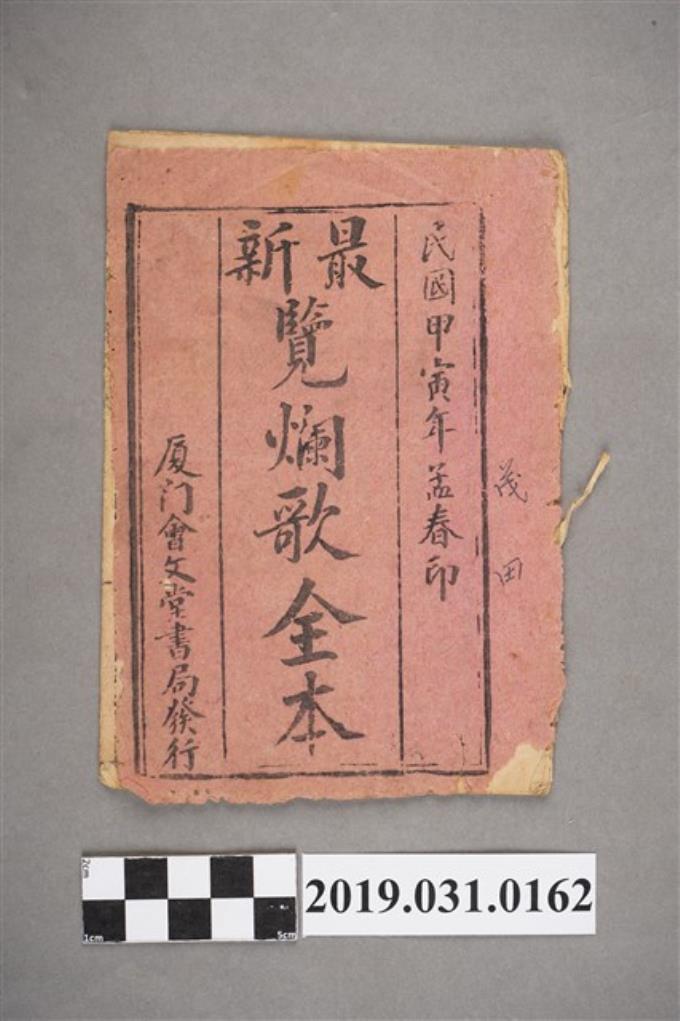 茂田
民國甲寅年孟春印
最新
覽爛歌全本
厦门會文堂書局發行
2cm
1cm
5cm
2019.031.0162